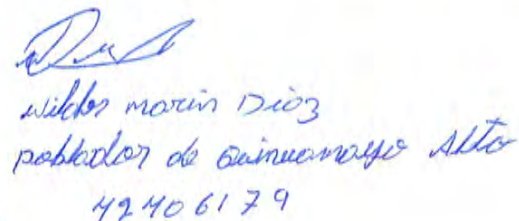 Wilder marin Dioz
poblador de Quinuamayo Alto
42406179